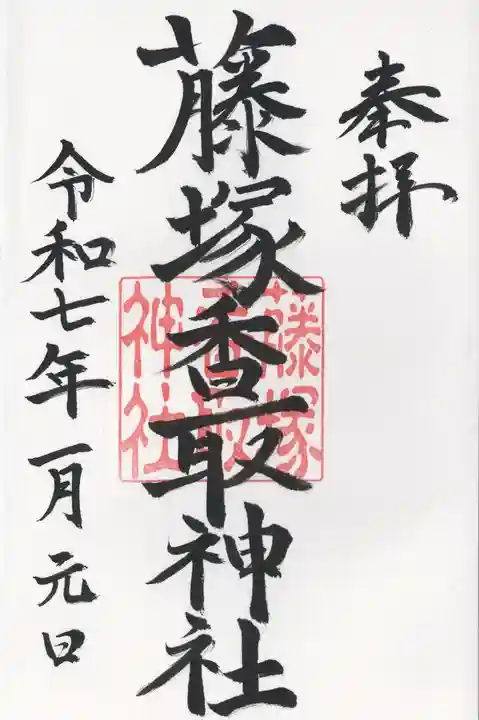 奉拝
藤塚香取神社
藤塚
香取
神社
令和七年一月元日